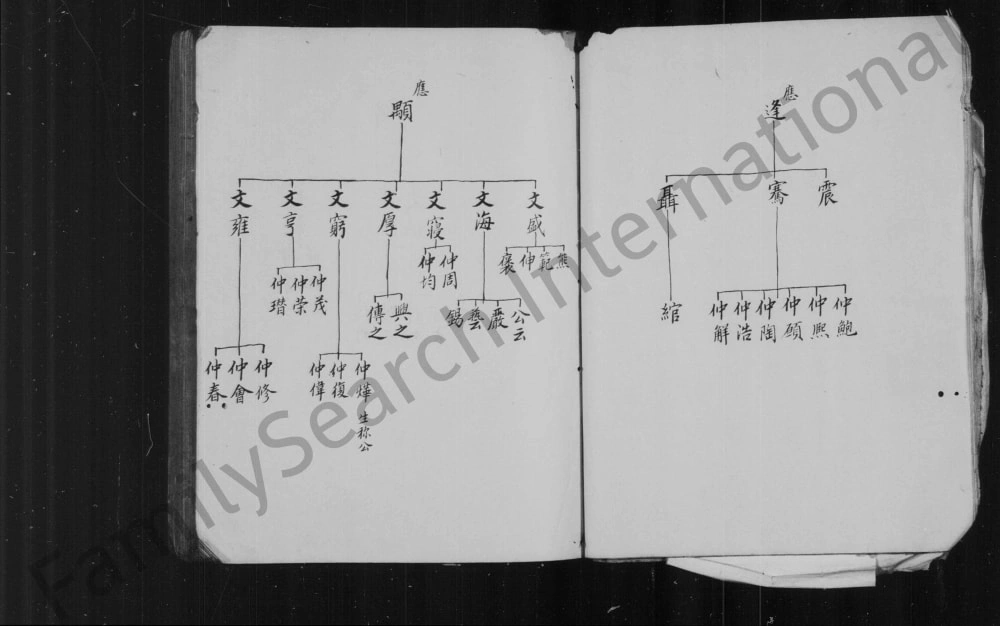 應
逢
震
騫
聶
仲鮑
仲熙
仲碩
仲陶
仲浩
仲解
綰
應
顯
文盛
文海
文寢
文厚
文窮
文亨
文雍
熊
範
伸
褒
公云
嚴
藝
錫
仲周
仲均
興之
傳之
仲燁 生称公
仲復
仲偉
仲茂
仲荣
仲瑨
仲修
仲會
仲春
FamilySearch International